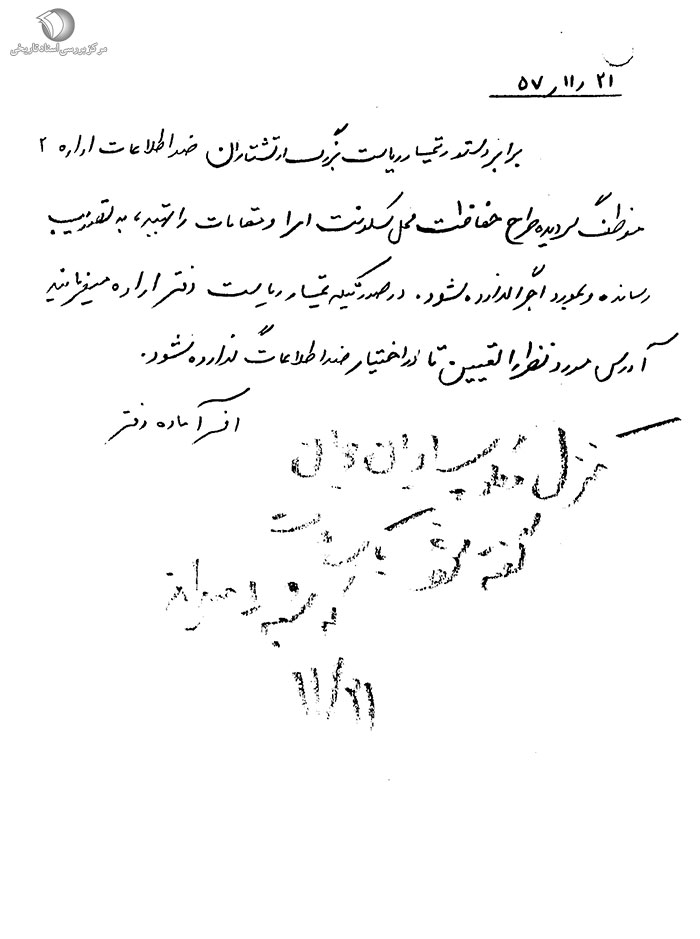 مرکز بررسی اسناد تاریخی
۵۷ ر ۱۱ ر ۲۱
برابر دستور تیمسار ریاست بزرگ ارتشتاران ضد اطلاعات اداره ۲
موظف گردیده طرح حفاظت محل سکونت امرا و مقامات را تهیه، به تصویب
رسانده و بمورد اجرا گذارده شود. در صورتیکه تیمسار ریاست دفتر اراده میفرمایند
آدرس مورد نظر را تعیین تا در اختیار ضد اطلاعات گذارده شود.
افسر آماده دفتر
منزل
گفته شود
۱۱/۲۱